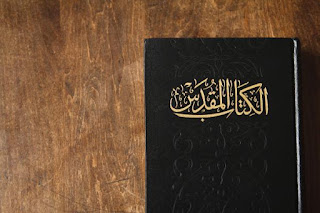 الكتاب المقدس